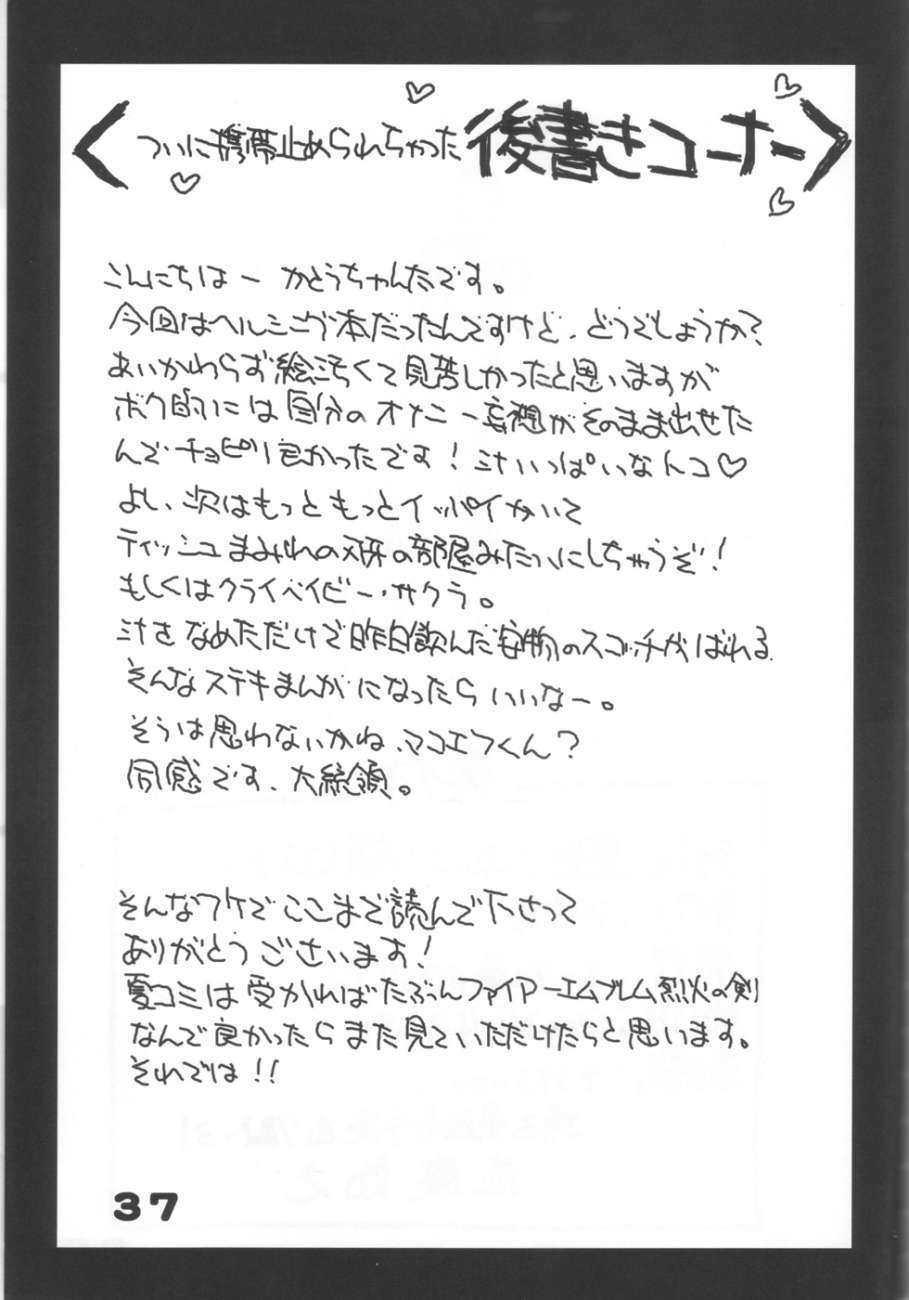 ついに携帯止められちゃった 後書きコーナー
こんにちはー かとうちゃんたです。
今回はヘルシング本だったんですけど、どうでしょうか?
あいかわらず絵汚くて見苦しかったと思いますが
ボク的には自分のオナニー妄想がそのまま出せた
んでチョピリ良かったです! 汁いっぱいなんコ♡
よし、次はもっともっとイッパイかいて
ティッシュまみれの の部屋みたいにしちゃうぞ!
もしくはクライベイビー・サクラ。
汁をなめただけで昨日飲んだ安物のスコッチがばれる
そんなステキまんがになったらいいなー。
そうは思わないかね、マコエフくん?
同感です、大統領。
そんなワケでここまで読んで下さって
ありがとうございます!
夏コミは受かればたぶんファイアーエムブレム烈火の剣
なんで良かったらまた見ていただけたらと思います。
それでは!!
37